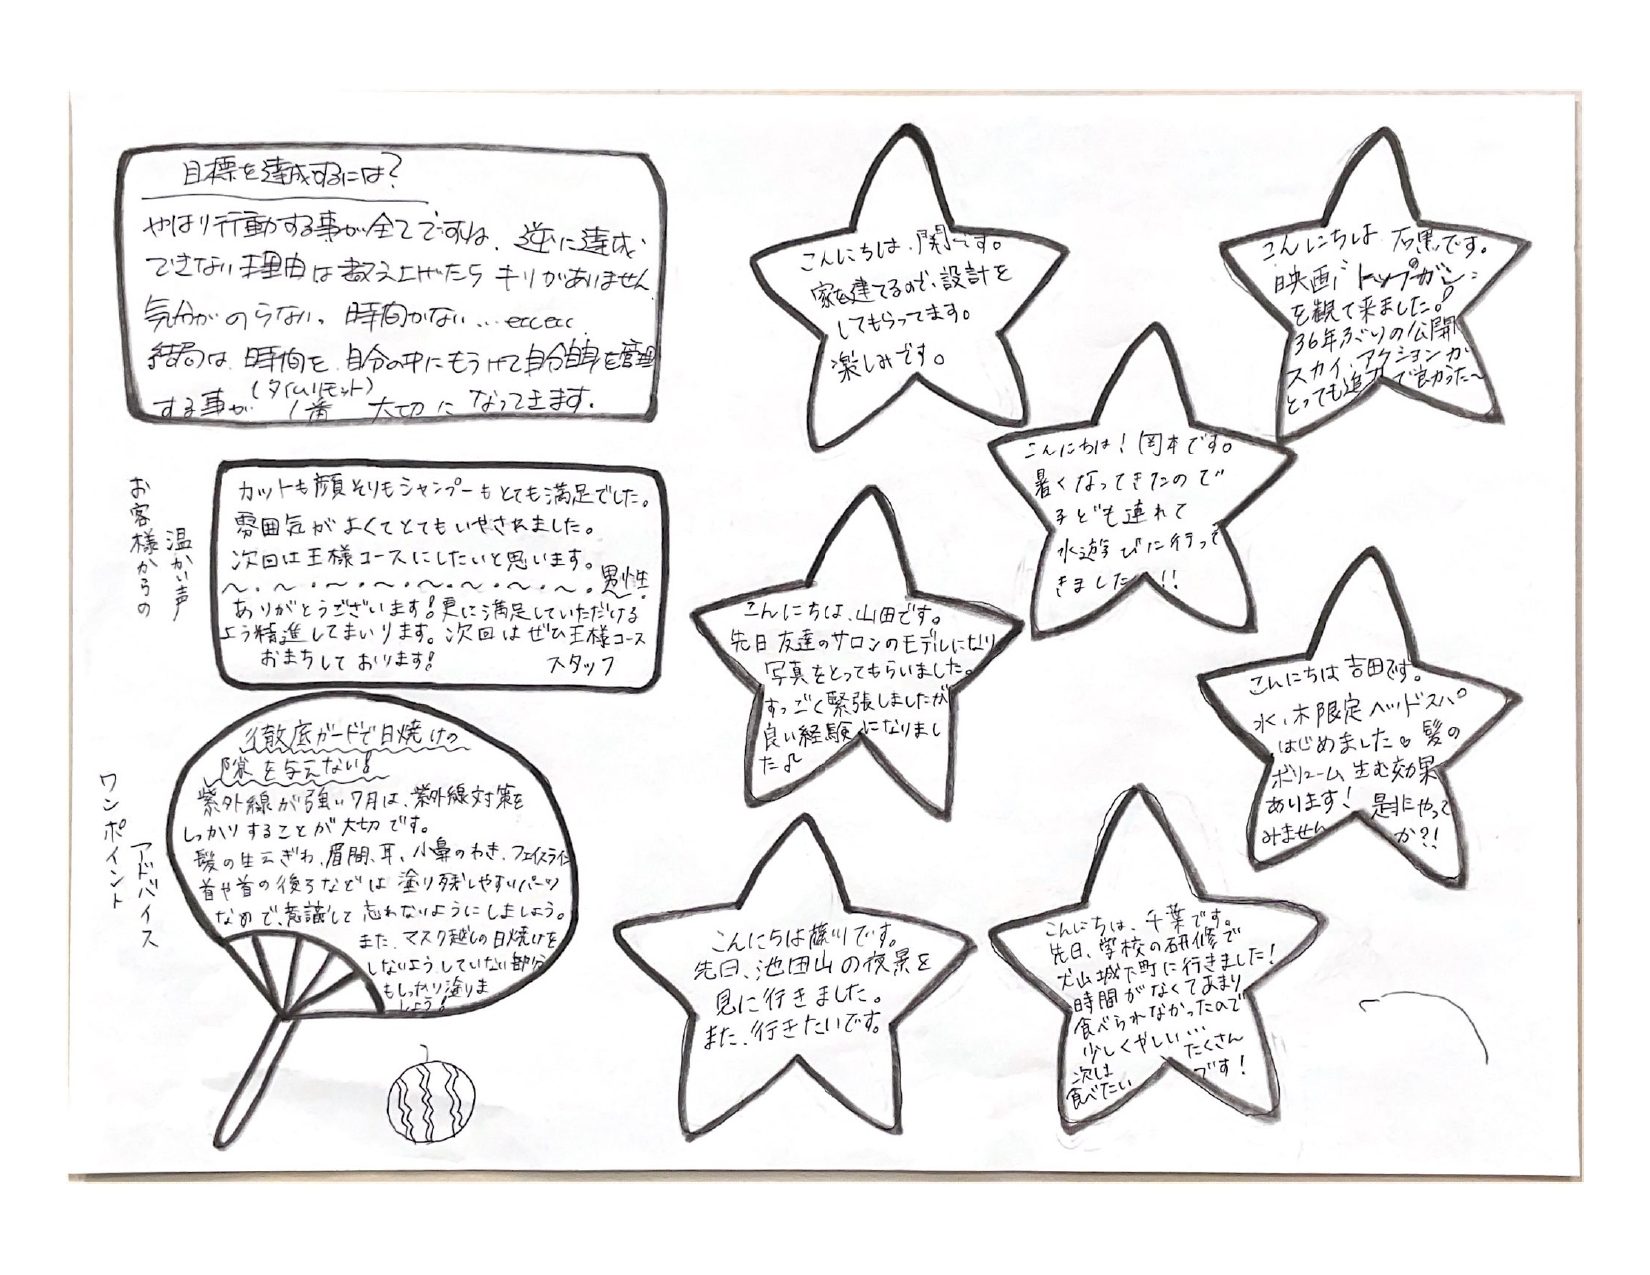 目標を達成するには?
やはり行動する事が全てですね、逆に達成
できない理由は数え上げたらキリがありません
気分がのらない。時間がない…ecc ecc.
結局は、時間を、自分の中にもうけて自分自身を管理
(タイムリミット)
する事が 1番 大切に なってきます.
お客様からの
温かい声
カットも顔そりもシャンプーもとても満足でした。
雰囲気がよくてとてもいやされました。
次回は王様コースにしたいと思います。
〜・〜・〜・〜・〜・〜・〜・男性
ありがとうございます!更に満足していただける
よう精進してまいります。次回はぜひ王様コース
おまちしております! スタッフ
ワンポイント
アドバイス
徹底ガードで日焼けの
隙を与えない!
紫外線が強い7月は、紫外線対策を
しっかりすることが大切です。
髪の生えぎわ、眉間、耳、小鼻のわき、フェイスライン
首や首の後ろなどは塗り残しやすいパーツ
なので、意識して忘れないようにしましょう。
また、マスク越しの日焼けを
しないよう、していない部分
もしっかり塗りま
しょう!
こんにちは、関です。
家を建てるので、設計を
してもらってます。
楽しみです。
こんにちは 石黒です。
映画"トップガン"
を観て来ました!
36年ぶりの公開
スカイ.アクションが
とても迫力で良かった〜
こんにちは!岡本です。
暑くなってきたので
子ども連れて
水遊びに行って
きました!!
こんにちは、山田です。
先日友達のサロンのモデルになり
写真をとってもらいました。
すっごく緊張しましたが
良い経験になりまし
た♪
こんにちは吉田です。
水、木限定ヘッドスパ
はじめました♡髪の
ボリューム生む効果
あります! 是非やって
みません か?!
こんにちは藤川です。
先日、池田山の夜景を
見に行きました。
また、行きたいです。
こんにちは、千葉です。
先日、学校の研修で
犬山城下町に行きました!
時間がなくてあまり
食べられなかったので
少しくやしい… たくさん
次は
食べたい です!